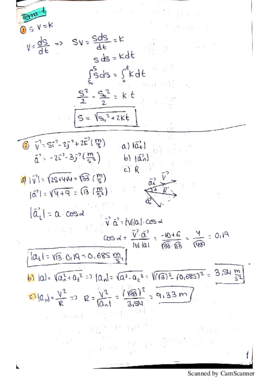 ① S·V = K
V = ds/dt ⇒ SV = S ds/dt = K
s ds = K dt
∫ s ds = ∫ K dt
S²/2 - S₀²/2 = K t
S = √(S₀² + 2Kt)
a) |a⃗t|
b) |a⃗n|
c) R
a) |V⃗| = √(25+4+4) = √33 (m/s)
|a⃗| = √(4+9) = √13 (m/s²)
|a⃗t| = a cos α
V⃗·a⃗ = |V||a|·cos α
cos α = V⃗·a⃗/|V||a| = = 0,19
|at| = √13·0,19 = 0,685 m/s²
b) |a| = √(an²+at²) ⇒ |an| = √(a²-at²) = √((√13)²-(0,685)²) = 3,54 m/s²
c) |an| = V²/R ⇒ R = V²/|an| = (√33)²/3,54 = 9,33 m
1
Scanned by CamScanner